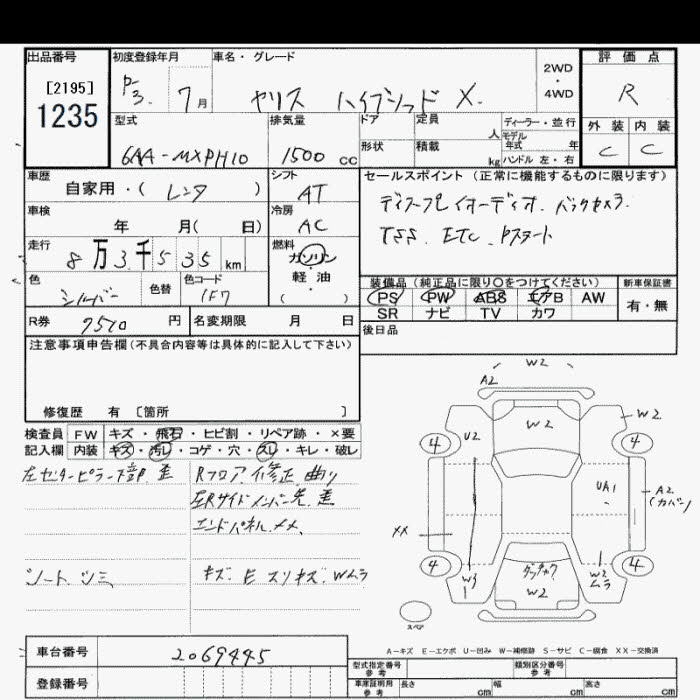 出品番号
[2195]
1235
初度登録年月
P-3. 7月
車名・グレード
ヤリス ハイブリッド X.
2WD
・
4WD
評価点
R
外装 内装
C C
型式
6AA-MXPH10
排気量
1500 cc
ドア
形状
定員 人
積載 kg
ディーラー・並行
モデル年式 年
ハンドル 左・右
車歴
自家用・( レンタ )
シフト
AT
車検
年 月( 日)
冷房
AC
走行
8万3千535 km
燃料
ガソリン
軽・油
( )
色
シルバー
色替
色コード
1F7
R券 9510 円
名変期限 月 日
セールスポイント (正常に機能するものに限ります)
ディスプレイオーディオ. バックカメラ.
TSS. ETC. Pスタート
装備品 (純正品に限り〇をつけてください)
PS PW ABS エアB AW
SR ナビ TV カワ
新車保証書
有・無
後日品
注意事項申告欄(不具合内容等は具体的に記入して下さい)
修復歴 有 〔箇所 〕
検査員 FW キズ・飛石・ヒビ割・リペア跡・×要
記入欄 内装 キズ・汚レ・コゲ・穴・スレ・キレ・破レ
左センターピラー下部 歪
Rフロア 修正 曲り
左Rサイドメンバー先 歪
エンドパネル メメ
シート シミ
キズ. E スリキズ. Wムラ
W2
A2
W2
W2
4
4
U2
UA1
A2
(カバー)
XX
4
4
W3
W2
ムラ
W2
スペア
A-キズ E-エクボ U-凹み W-補修跡 S-サビ C-腐食 XX-交換済
車台番号 2069445
登録番号
型式指定番号
参考
類別区分番号
参考
車庫証明用
参考
長さ cm 幅 cm 高さ cm